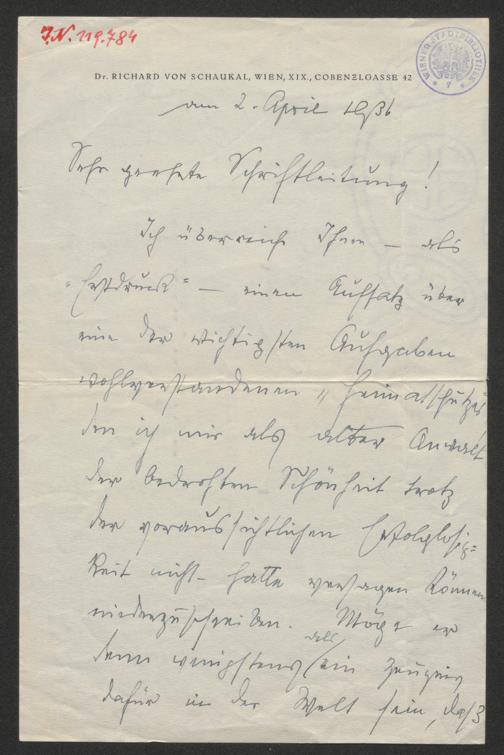 I.N. 119.784
WIENER STADTBIBLIOTHEK
Dr. RICHARD VON SCHAUKAL, WIEN, XIX., COBENZLGASSE 42
am 2. April 1936
Sehr geehrte Schriftleitung!
Ich überreiche Ihnen — als
"Erstdruck" — einen Aufsatz über
eine der wichtigsten Aufgaben
wohlverstandenen „Heimatschutzes
den ich mir als alter Anwalt
der bedrohten Schönheit trotz
der voraussichtlichen Erfolglosig=
keit nicht hatte versagen können
niederzuschreiben. Möge er
denn wenigstens als ein Zeugnis
dafür in der Welt sein, daß